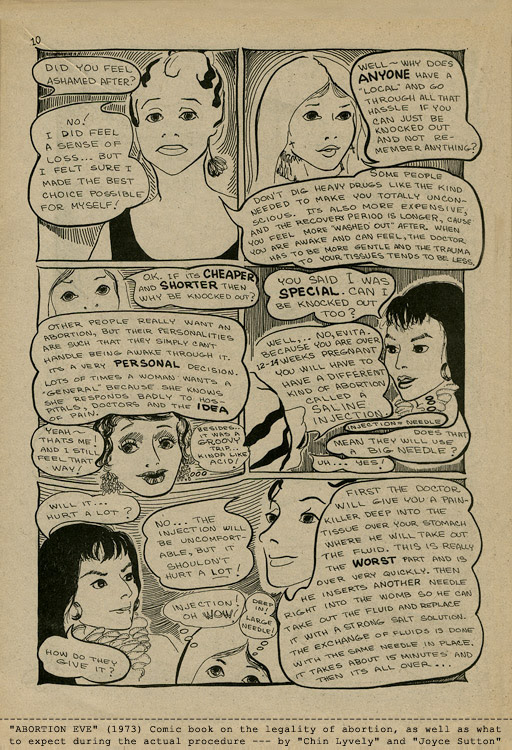 10
DID YOU FEEL
ASHAMED AFTER?
NO!
I DID FEEL
A SENSE OF
LOSS... BUT
I FELT SURE I
MADE THE BEST
CHOICE POSSIBLE
FOR MYSELF!
WELL~ WHY DOES
ANYONE HAVE A
"LOCAL" AND GO
THROUGH ALL THAT
HASSLE IF YOU
CAN JUST BE
KNOCKED OUT
AND NOT RE-
MEMBER ANYTHING?
SOME PEOPLE
DON'T DIG HEAVY DRUGS LIKE THE KIND
NEEDED TO MAKE YOU TOTALLY UNCON-
SCIOUS. IT'S ALSO MORE EXPENSIVE,
AND THE RECOVERY PERIOD IS LONGER, 'CAUSE
YOU FEEL MORE "WASHED OUT" AFTER. WHEN
YOU ARE AWAKE AND CAN FEEL, THE DOCTOR
HAS TO BE MORE GENTLE AND THE TRAUMA
TO YOUR TISSUES TENDS TO BE LESS.
O.K. IF ITS CHEAPER
AND SHORTER THEN
WHY BE KNOCKED OUT?
OTHER PEOPLE REALLY WANT AN
ABORTION, BUT THEIR PERSONALITIES
ARE SUCH THAT THEY SIMPLY CAN'T
HANDLE BEING AWAKE THROUGH IT.
ITS A VERY PERSONAL DECISION.
LOTS OF TIMES A WOMAN WANTS A
"GENERAL" BECAUSE SHE KNOWS
SHE RESPONDS BADLY TO HOS-
PITALS, DOCTORS AND THE IDEA
OF PAIN.
YEAH~
THATS ME!
AND I STILL
FEEL THAT
WAY!
BESIDES..
IT WAS A
GROOVY
TRIP...
KINDA LIKE
ACID!
YOU SAID I WAS
SPECIAL. CAN I
BE KNOCKED OUT
TOO?
WELL,.. NO, EVITA.
BECAUSE YOU ARE OVER
12-14 WEEKS PREGNANT
YOU WILL HAVE TO
HAVE A DIFFERENT
KIND OF ABORTION
CALLED A
SALINE
INJECTION.
INJECTION = NEEDLE
DOES THAT
MEAN THEY WILL USE
A BIG NEEDLE?
UH... YES!
WILL IT...
HURT A LOT?
NO... THE
INJECTION WILL
BE UNCOMFORT-
ABLE, BUT IT
SHOULDN'T
HURT A LOT!
HOW DO THEY
GIVE IT?
INJECTION!
OH WOW!
DEEP
IN!
LARGE
NEEDLE!
FIRST THE DOCTOR
WILL GIVE YOU A PAIN-
KILLER DEEP INTO THE
TISSUE OVER YOUR STOMACH
WHERE HE WILL TAKE OUT
THE FLUID. THIS IS REALLY
THE WORST PART AND IS
OVER VERY QUICKLY. THEN
HE INSERTS ANOTHER NEEDLE
RIGHT INTO THE WOMB SO HE CAN
TAKE OUT THE FLUID AND REPLACE
IT WITH A STRONG SALT SOLUTION.
THE EXCHANGE OF FLUIDS IS DONE
WITH THE SAME NEEDLE IN PLACE.
IT TAKES ABOUT 15 MINUTES AND
THEN ITS ALL OVER...
"ABORTION EVE" (1973) Comic book on the legality of abortion, as well as what
to expect during the actual procedure --- by "Chin Lyvely" and "Joyce Sutton"